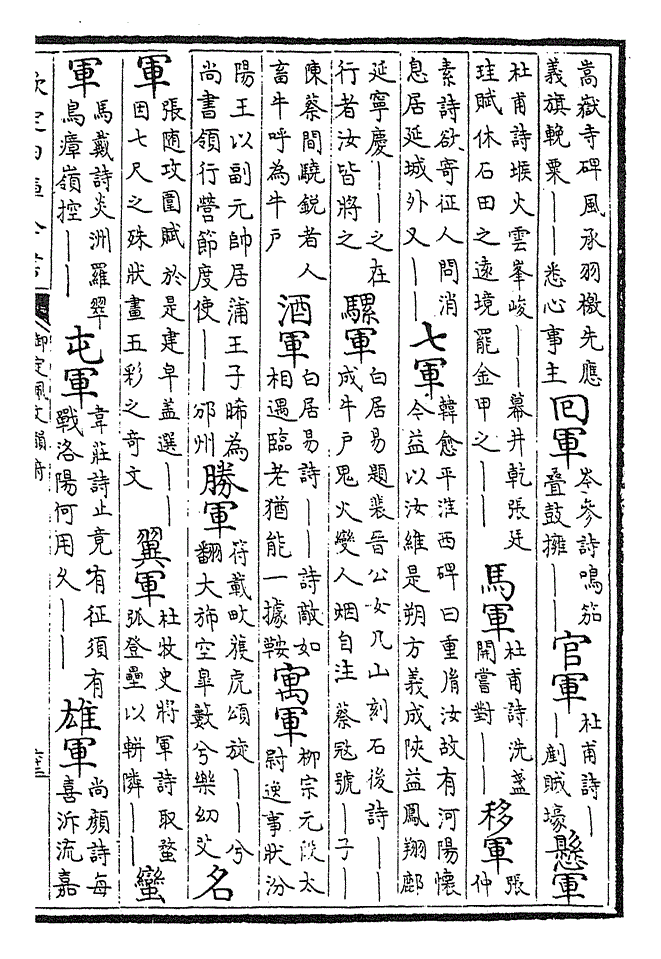 嵩嶽寺碑風承羽檄先應
義旗輓粟——悉心事主
囘軍
岑參詩鳴笳
疊鼓擁——
官軍
杜甫詩—
—劃賊壕
懸軍
杜甫詩堠火雲峯峻——幕井乾張廷
珪賦休石田之遠境罷金甲之——
馬軍
杜甫詩洗盞
開嘗對——
移軍
張
仲
素詩欲寄征人問消
息居延城外又——
七軍
韓愈平淮西碑曰重胤汝故有河陽懷
今益以汝維是朔方義成陝益鳳翔鄜
延寧慶——之在
行者汝皆將之
騾軍
白居易題裴晉公女几山刻石後詩——
成牛戶鬼火變人烟自注 蔡寇號——子——
陳蔡間驍銳者人
畜牛呼為牛戶
酒軍
白居易詩——詩敵如
相遇臨老猶能一據鞍
寓軍
柳宗元段太
尉逸事狀汾
陽王以副元帥居蒲王子晞為
尚書領行營節度使——邠州
勝軍
符載畋獲虎頌旋——兮
翻大斾空皐藪兮樂幼艾
名
軍
張隨攻圍賦 於是建皁盖選——
因七尺之殊狀畫五彩之奇文
翼軍
杜牧史將軍詩取蝥
弧登壘以駢隣——
蠻
軍
馬戴詩炎洲羅翠
鳥瘴嶺控——
屯軍
韋莊詩止竟有征須有
戰洛陽何用久——
雄軍
尚顏詩每
喜泝流嘉
欽定四庫全書
御定佩文韻府